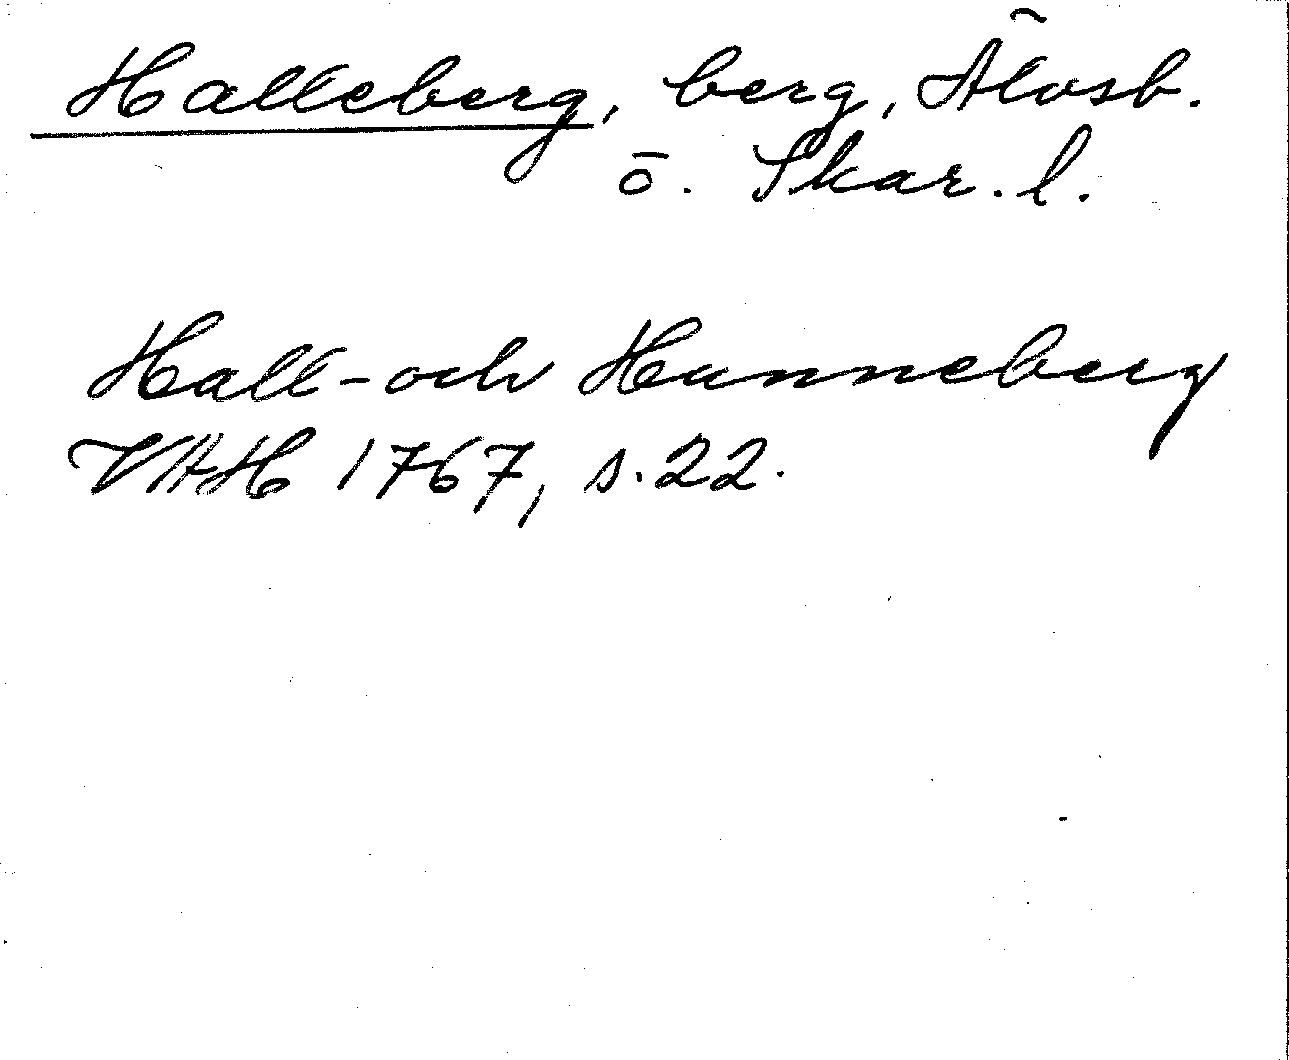 Halleberg, berg, Älvsb.
ö. Skar. l.
Hall- och Hunneberg
VAH 1767, s. 22.